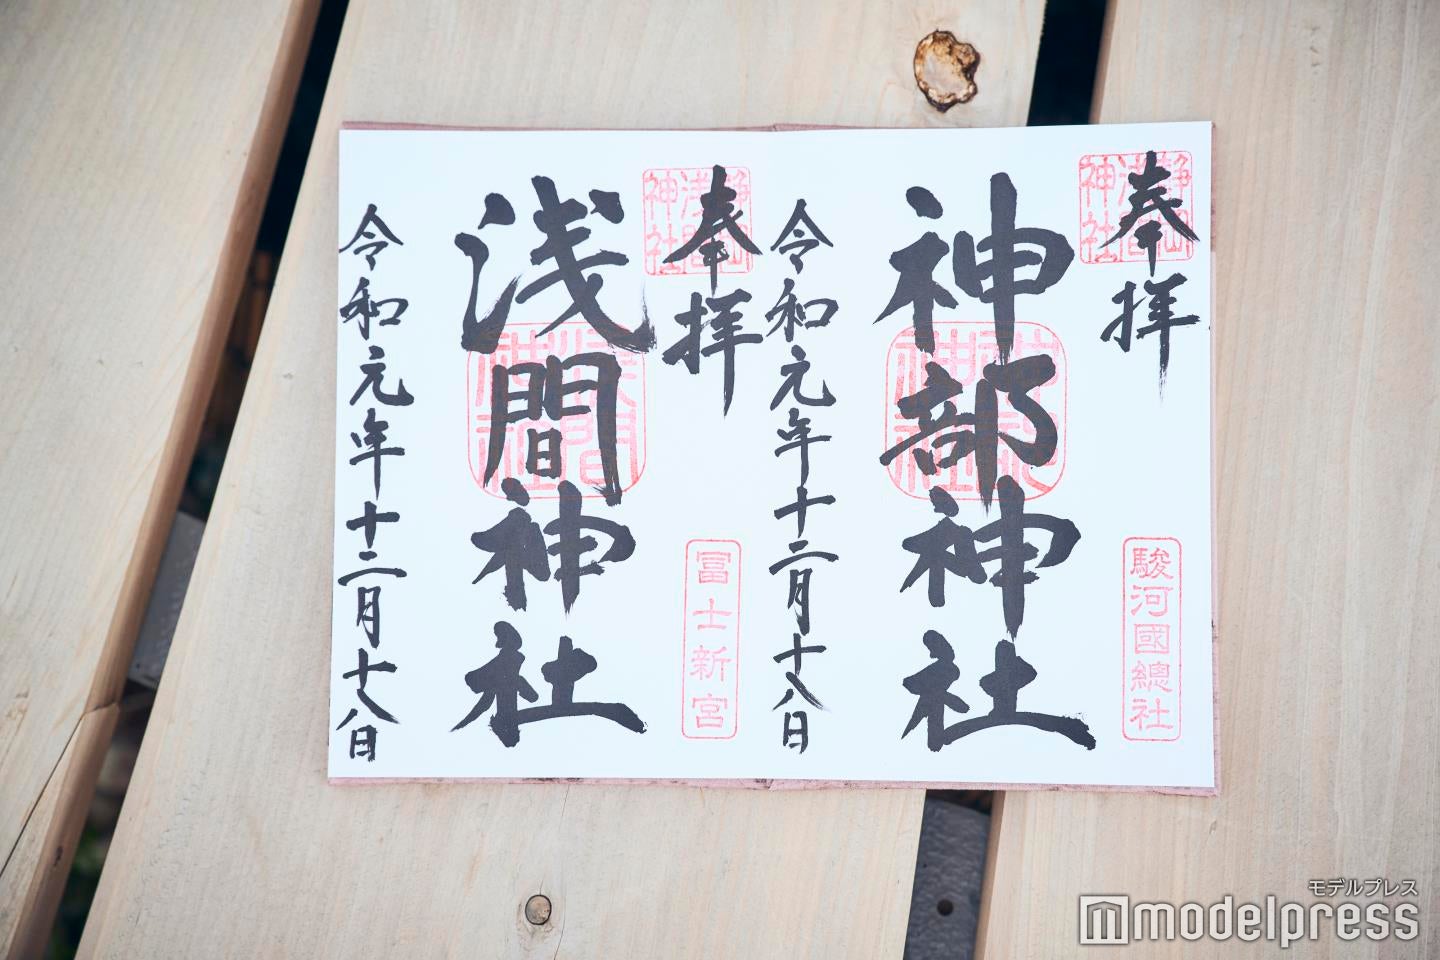 奉拝
神部神社
駿河國總社
令和元年十二月十八日
奉拝
浅間神社
冨士新宮
令和元年十二月十八日
静岡
浅間
神社
静岡
浅間
神社
モデルプレス
modelpress